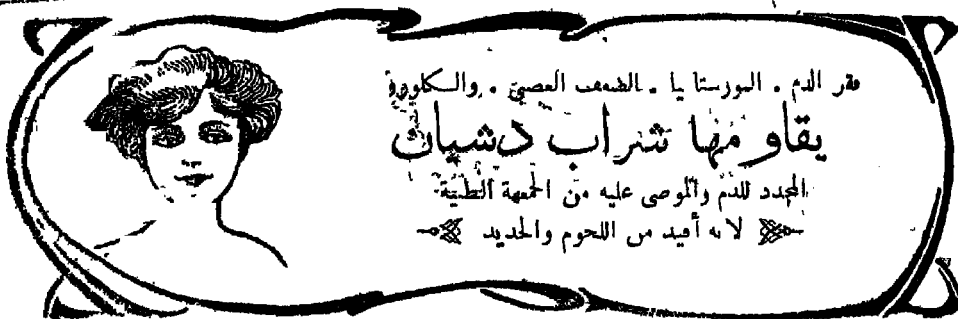 فقر الدم . النورستانيا . الضعف العصبي . والكلوروز
يقاومها شراب دشيان
المجدد للدم والموصى عليه من الجمعية الطبية
لانه أفيد من اللحوم والحديد